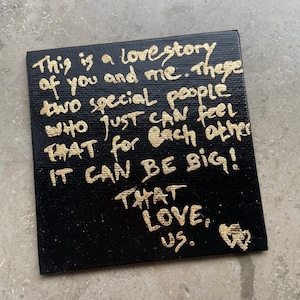 This is a lovestory
of you and me. These
two special people
WHO just CAN feel
THAT for Each other
IT CAN BE BIG!
THAT
LOVE,
US.